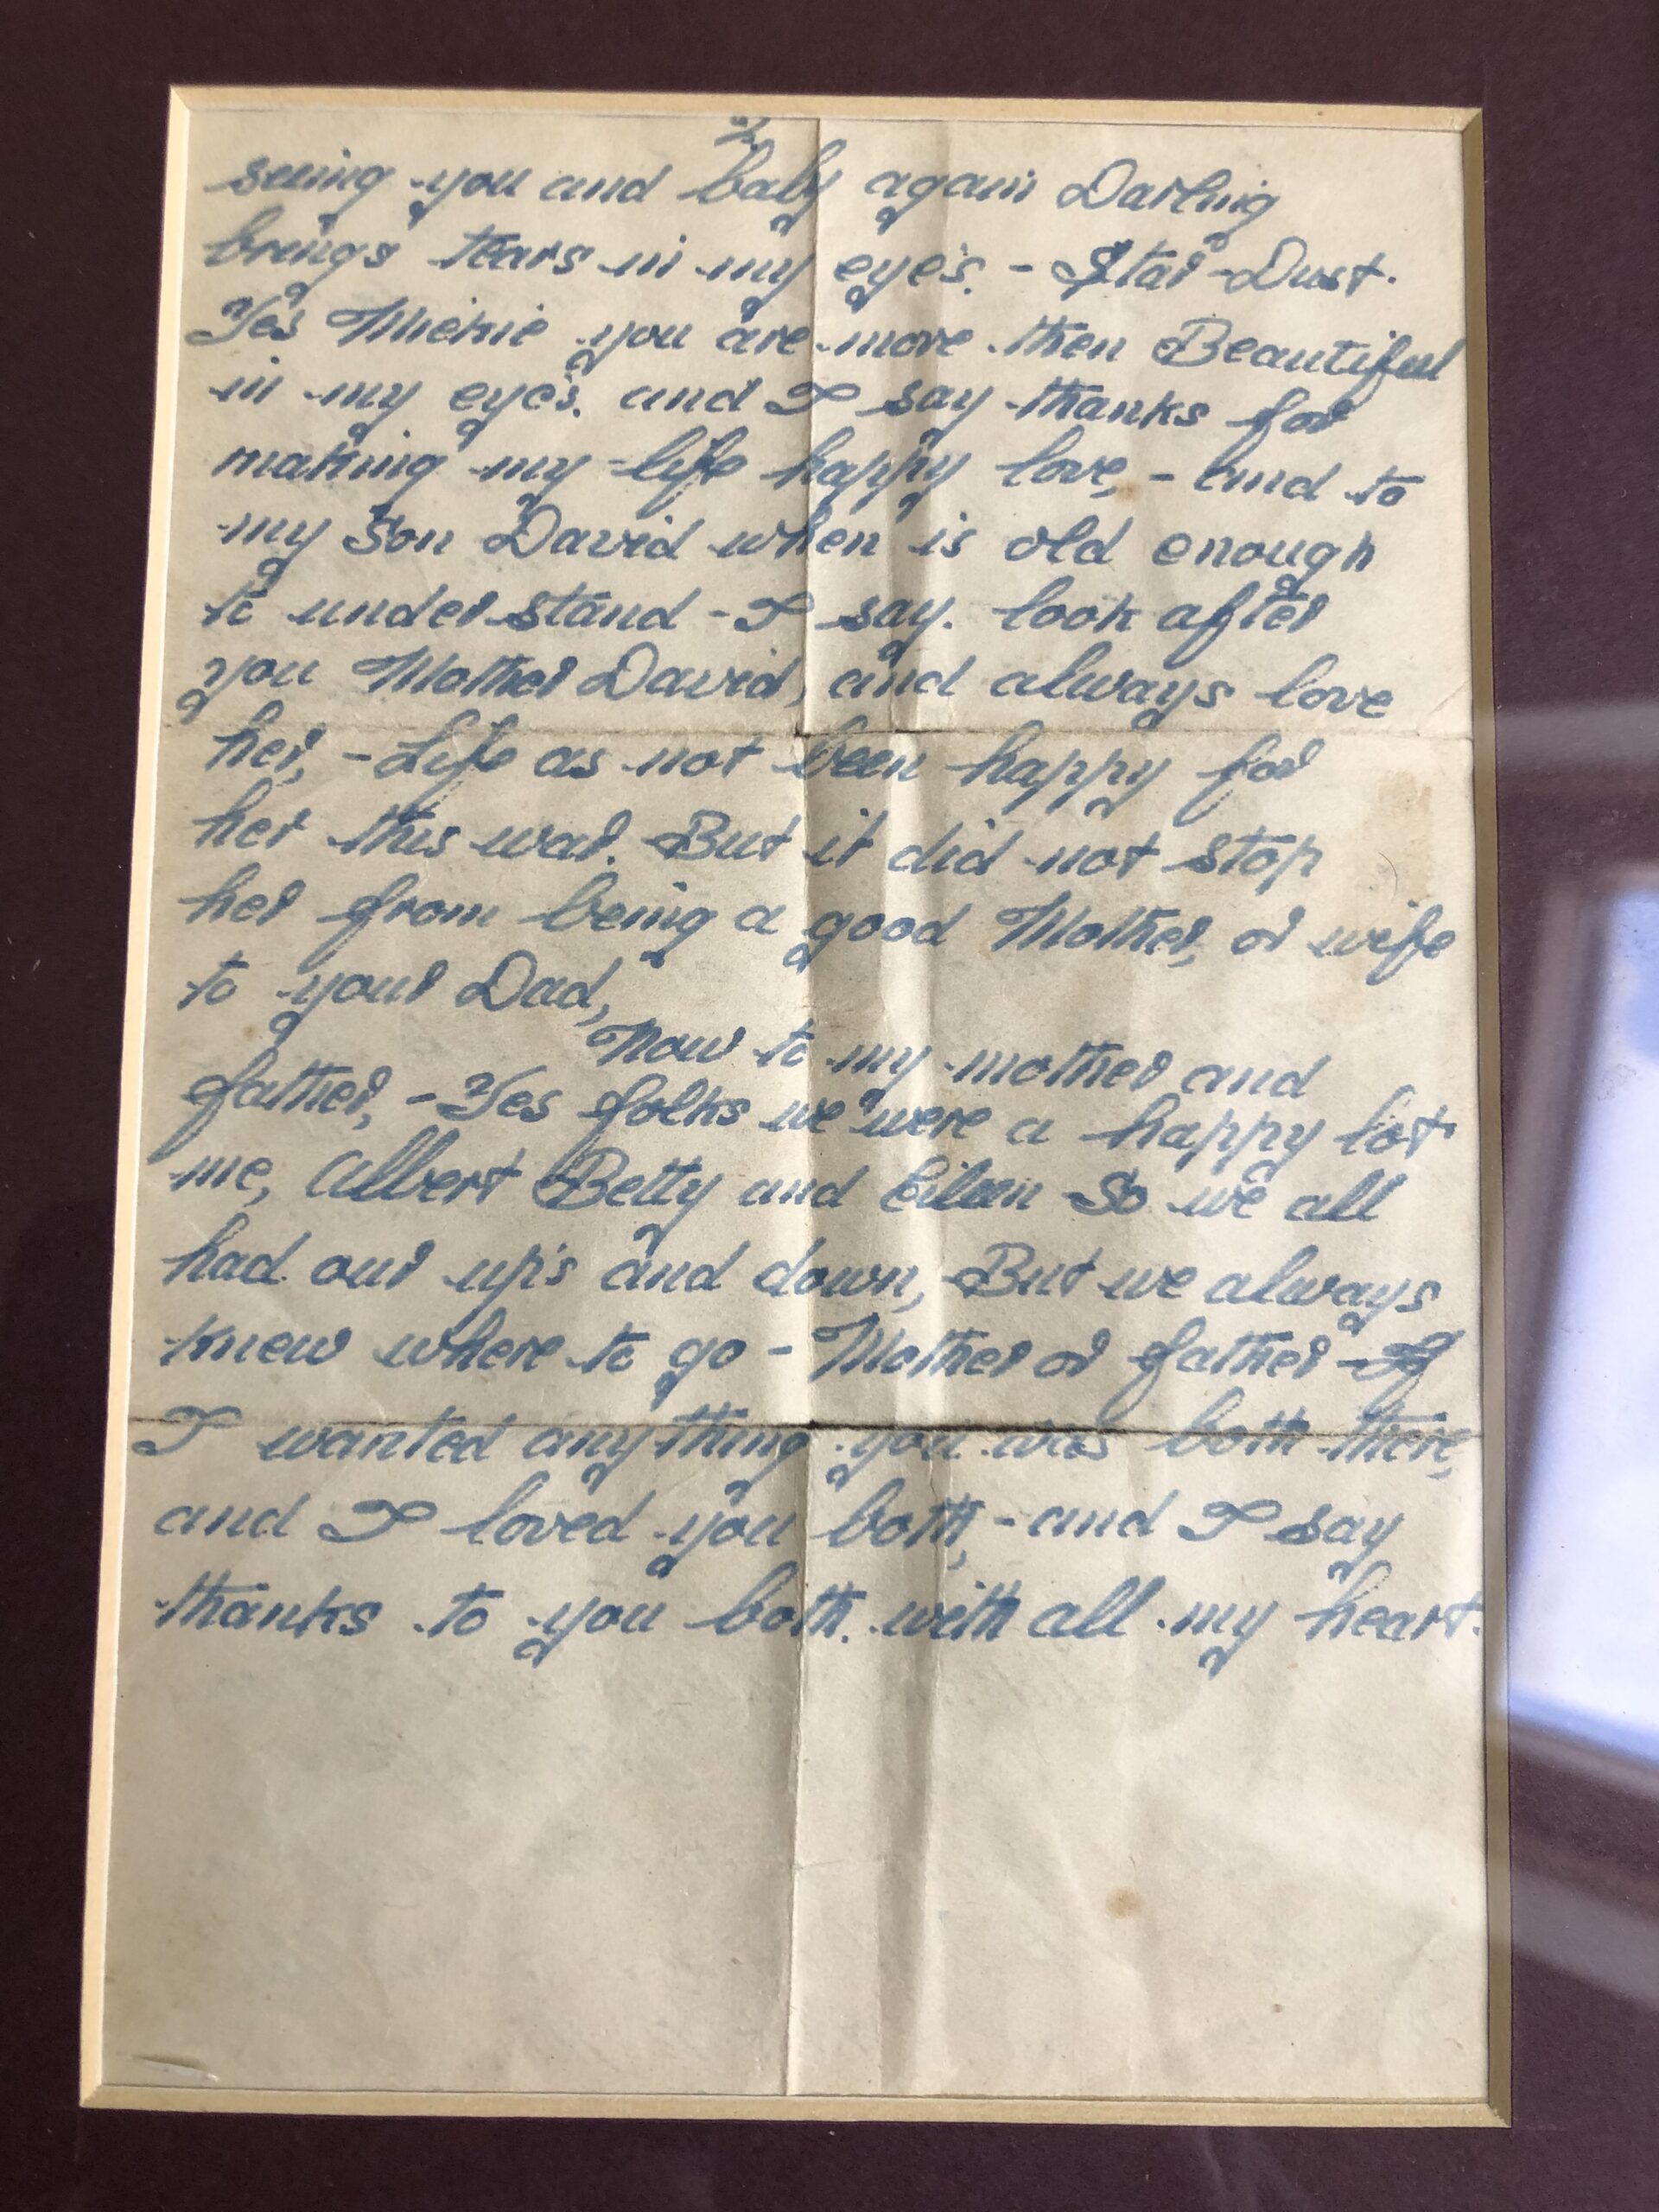 2.
seeing you and baby again Darling
brings tears in my eye's. - Star-Dust.
Yes Mickie you are more then Beautiful
in my eye's. and I say thanks for
making my life happy love, - and to
my Son David when is old enough
to understand - I say. look after
you Mother David, and always love
her, - Life as not been happy for
her this war. But it did not stop
her from being a good Mother, or wife
to your Dad,
Now to my mother and
father, - Yes folks we were a happy lot
me, Albert Betty and Eileen So we all
had our up's and down, But we always
knew where to go - Mother or father - If
I wanted anything you was both there,
and I loved you both, - and I say
thanks to you both. with all my heart.